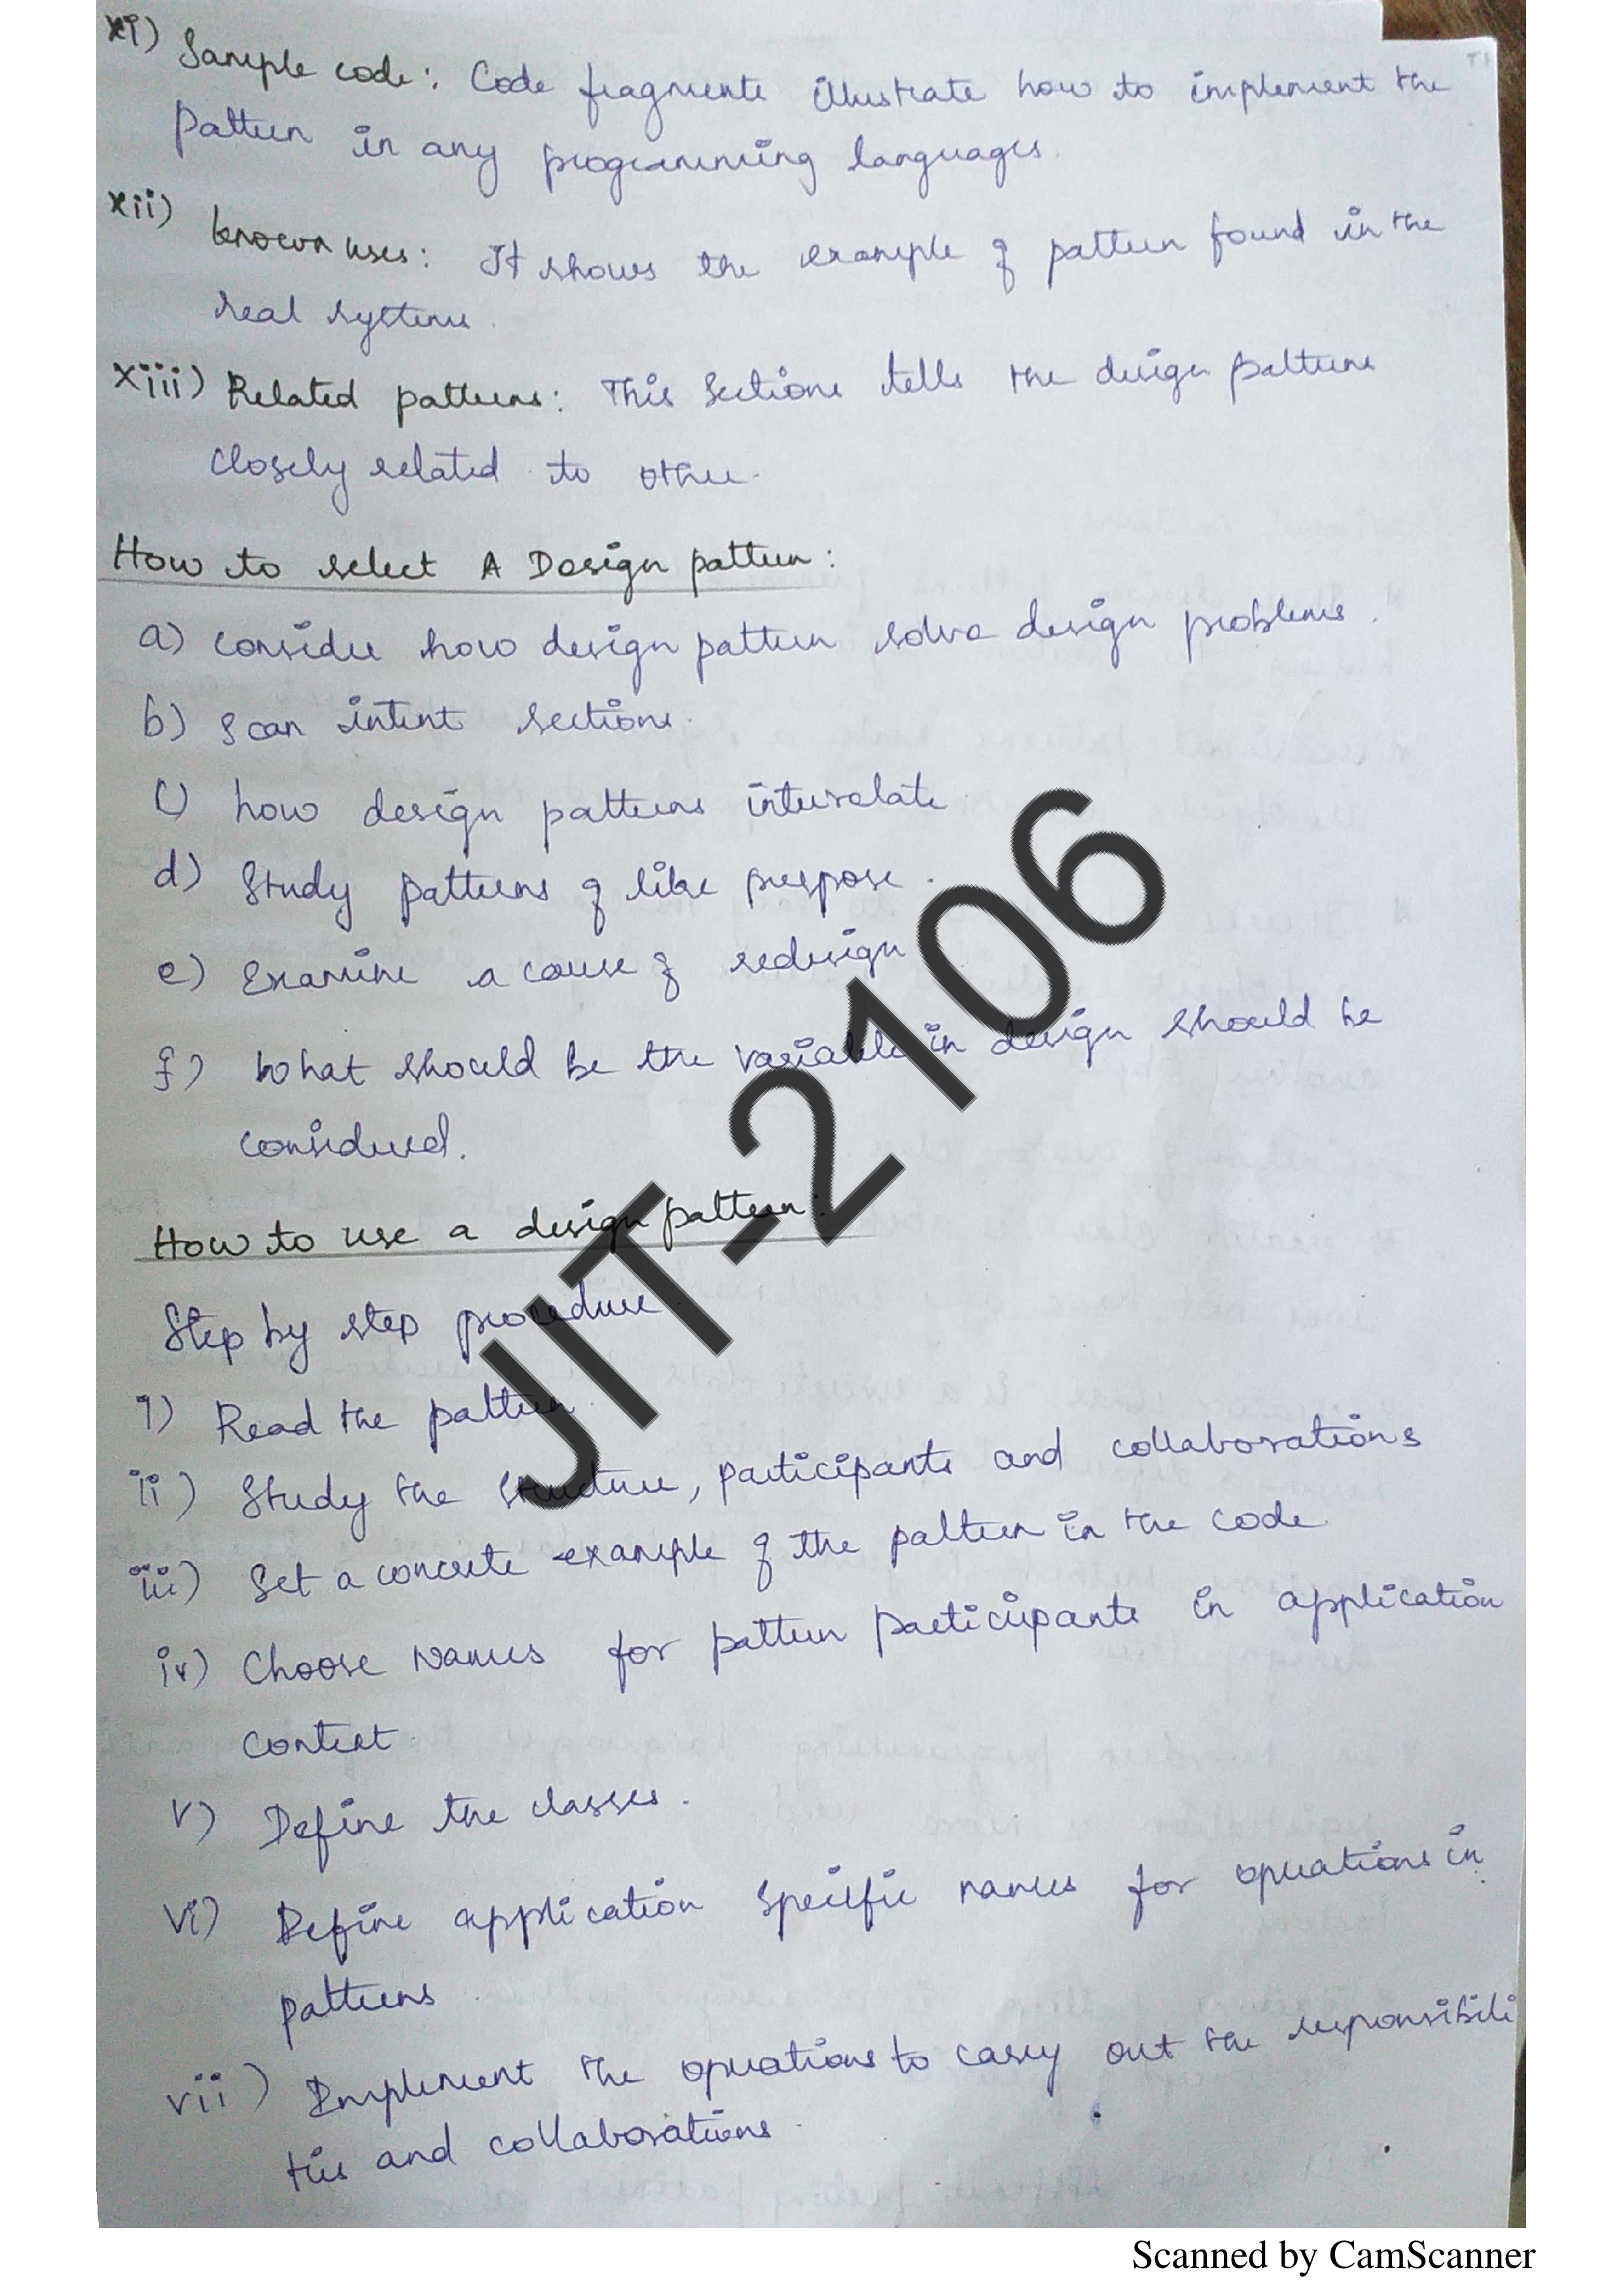 xi) Sample code: Code fragments illustrate how to implement the
Pattern in any programming languages.
xii) known uses: It shows the example of pattern found in the
real systems.
xiii) Related patterns: This Sections tells the design patterns
closely related to other.
How to select A Design pattern:
a) consider how design pattern solve design problems.
b) Scan intent sections.
c) how design patterns interrelate.
d) Study patterns of like purpose.
e) Examine a cause of redesign
f) What should be the variable in design should be
considered.
How to use a design pattern:
Step by step procedure
i) Read the pattern.
ii) Study the structure, participants and collaborations
iii) Set a concrete example of the pattern in the code.
iv) Choose Names for pattern participants in application
context.
v) Define the classes.
vi) Define application specific names for operations in
patterns.
vii) Implement the operations to carry out the responsibili
ties and collaborations.
JIT-2106
Scanned by CamScanner